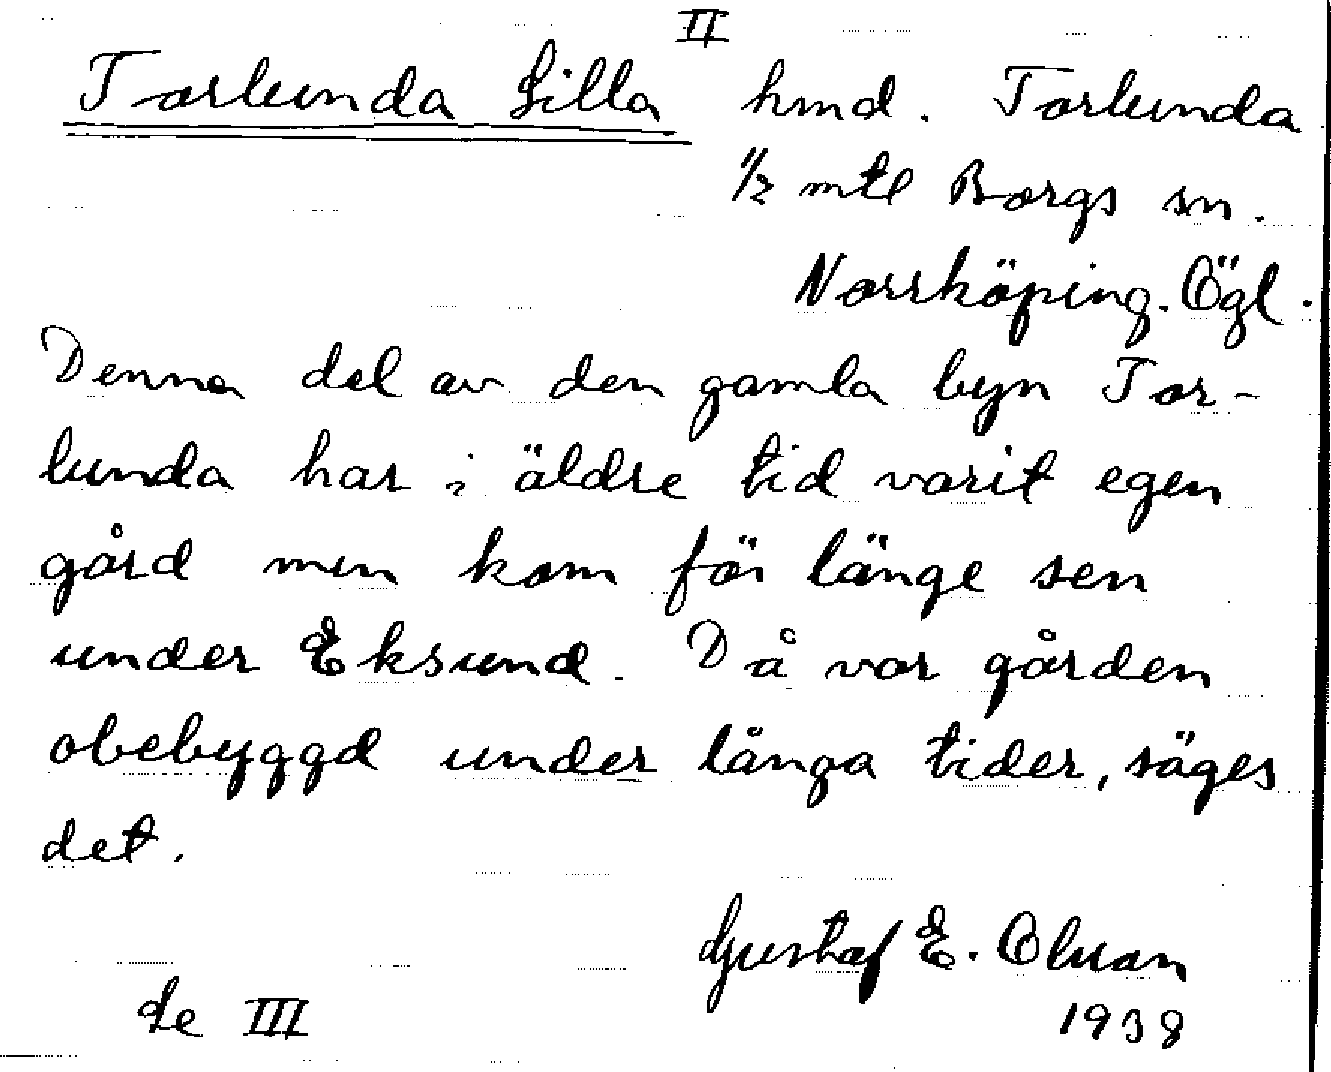 II
Torlunda Lilla hmd. Torlunda
1/2 mtl Borgs sn.
Norrköping. Ögl.
Denna del av den gamla byn Tor-
lunda har i äldre tid varit egen
gård men kom för länge sen
under Eksund. Då var gården
obebyggd under långa tider, säges
det.
Gustaf E. Olsson
Se III
1938